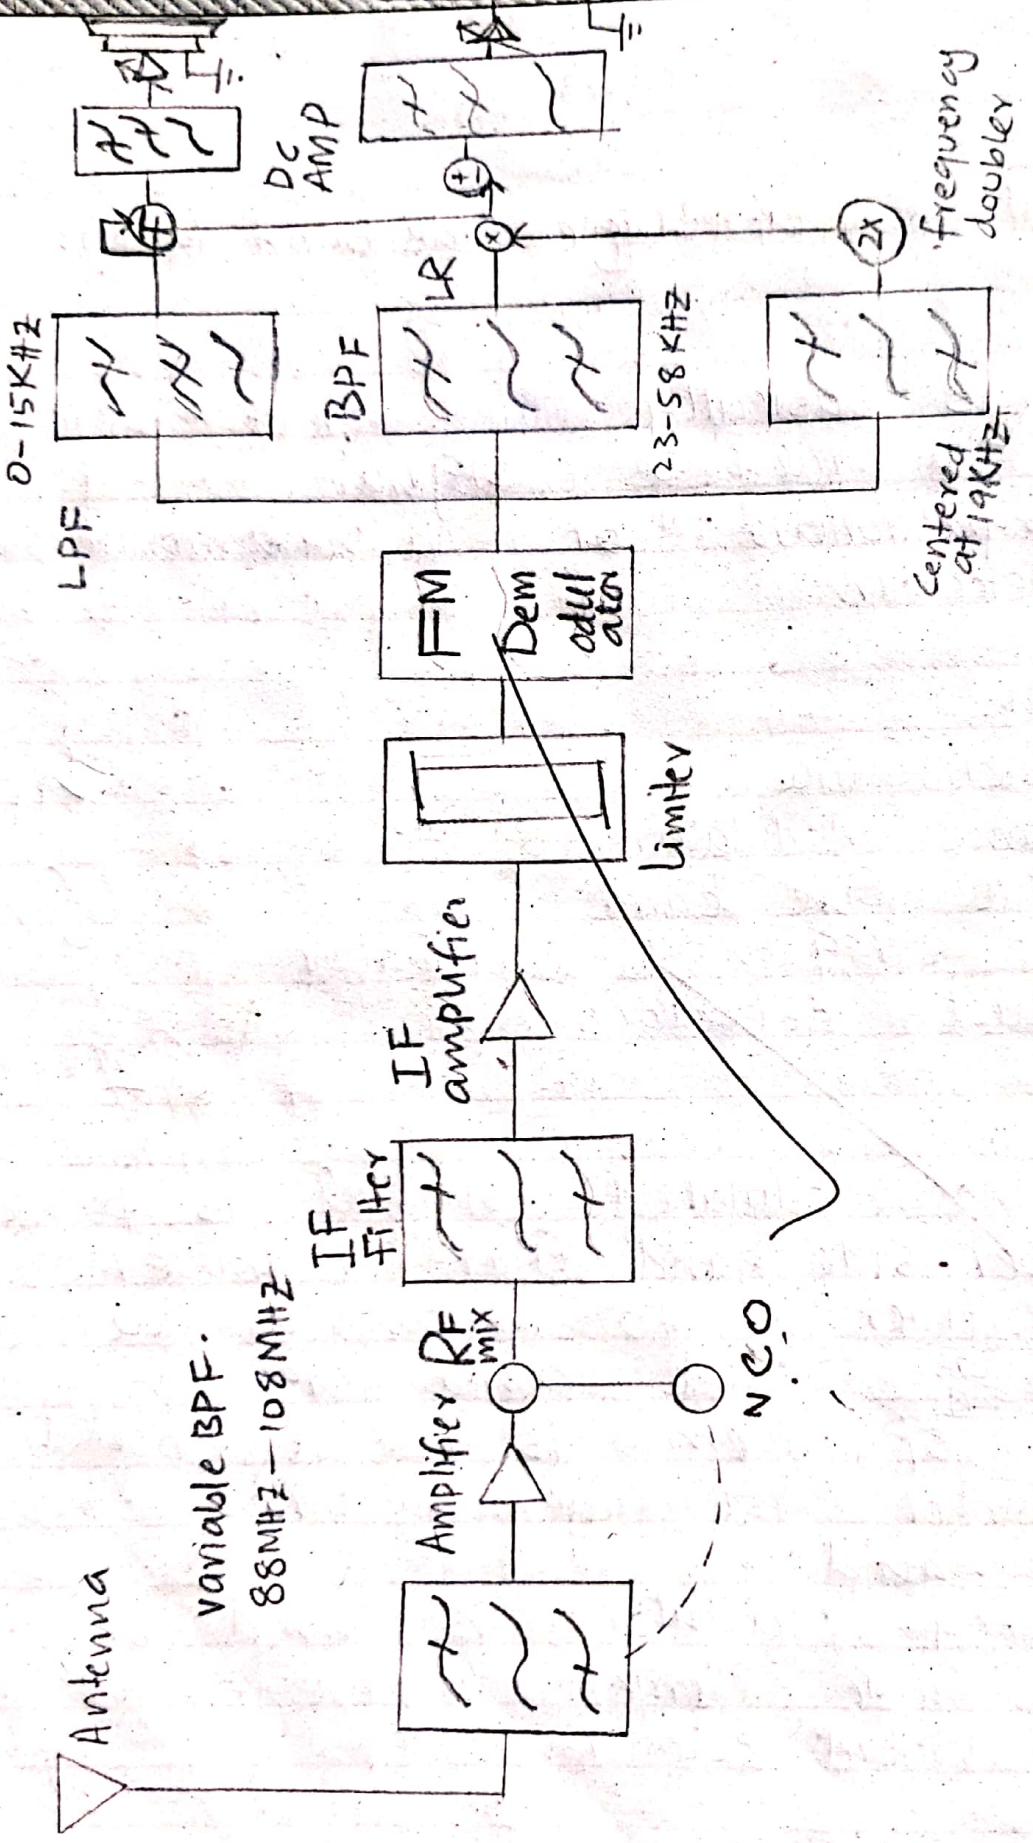 Antenna
variable BPF.
88MHZ-108MHZ
Amplifier
RF
mix
NCO
IF
Filter
IF
amplifier
Limiter
FM
Dem
odul
ator
LPF
0-15KHZ
BPF
LR
23-58 KHZ
Centered
at 19KHZ
2X
frequency
doubler
x
+
±
DC
AMP